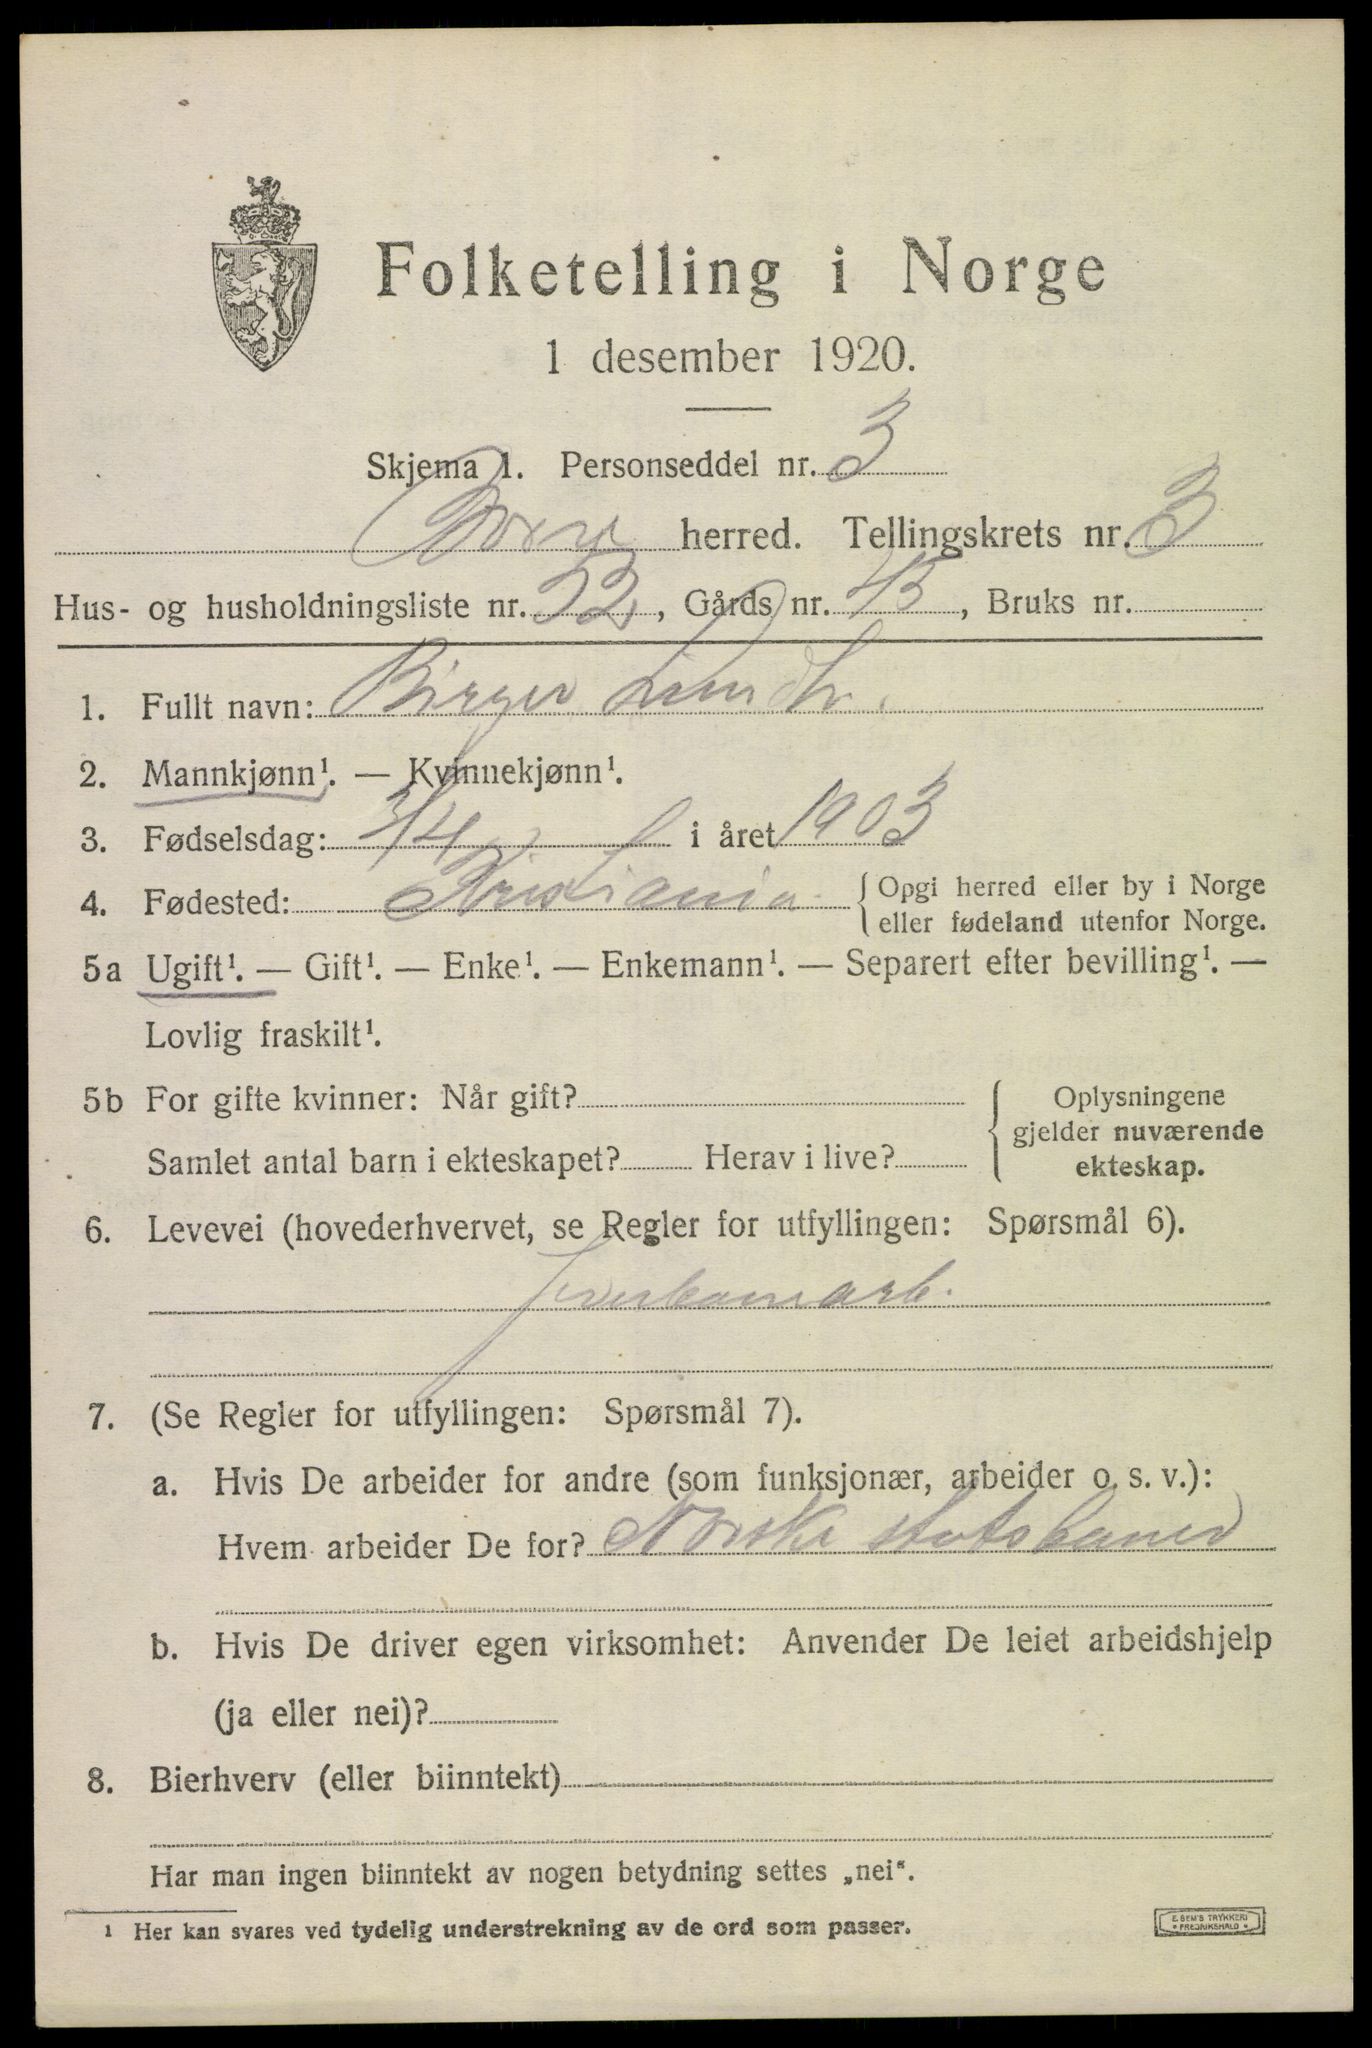 Folketelling i Norge
1 desember 1920.
Skjema 1. Personseddel nr. 3
Borre herred. Tellingskrets nr. 3
Hus- og husholdningsliste nr. 32, Gårds nr. 45, Bruks nr.
1. Fullt navn: Birger
2. Mannkjønn¹. — Kvinnekjønn¹.
3. Fødselsdag: 3/4 i året 1903
4. Fødested: Kristiania { Opgi herred eller by i Norge
eller fødeland utenfor Norge.
5a Ugift¹. — Gift¹. — Enke¹. — Enkemann¹. — Separert efter bevilling¹. —
Lovlig fraskilt¹.
5b For gifte kvinner: Når gift? { Oplysningene
gjelder nuværende
Samlet antal barn i ekteskapet? Herav i live?
ekteskap.
6. Levevei (hovederhvervet, se Regler for utfyllingen: Spørsmål 6).
Jernbanearb.
7. (Se Regler for utfyllingen: Spørsmål 7).
a. Hvis De arbeider for andre (som funksjonær, arbeider o. s. v.):
Hvem arbeider De for? Norske statsbaner
b. Hvis De driver egen virksomhet: Anvender De leiet arbeidshjelp
(ja eller nei)?
8. Bierhverv (eller biinntekt)
Har man ingen biinntekt av nogen betydning settes „nei“.
¹ Her kan svares ved tydelig understrekning av de ord som passer.
E. SEM'S TRYKKERI
FREDRIKSHALD